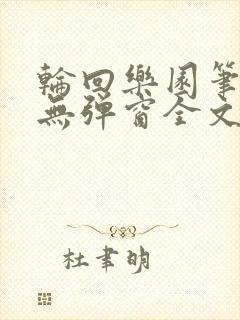 輪回樂園筆
無彈窗全文
杜聿明